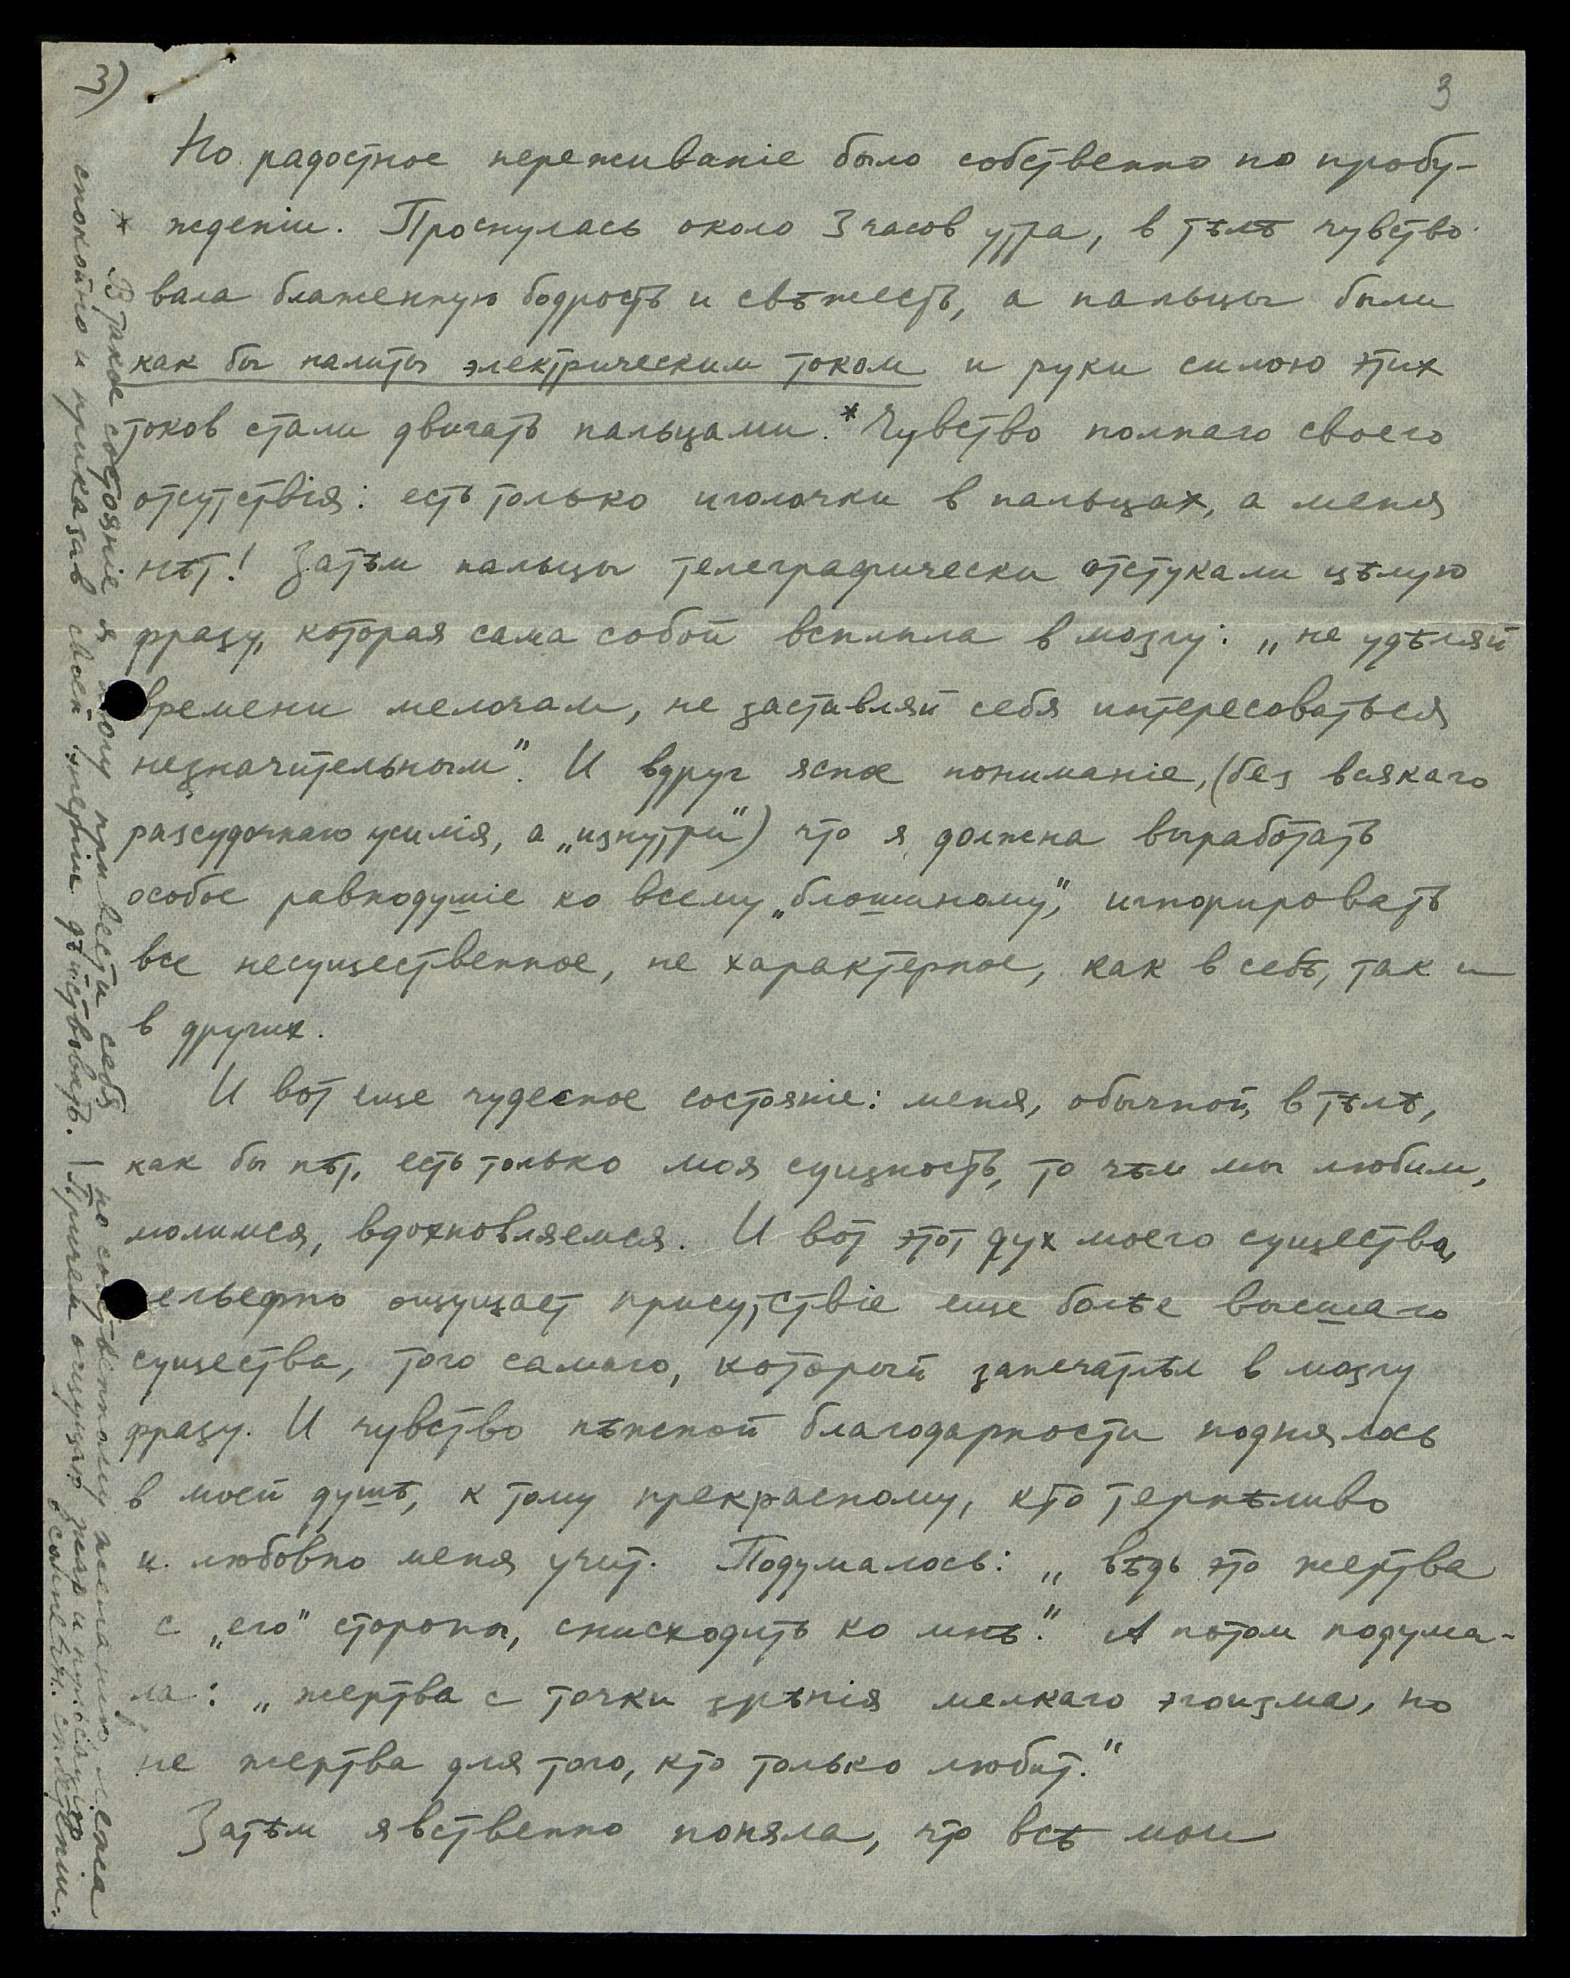 3)
3
Но радостное переживаніе было собственно по пробу-
жденіи. Проснулась около 3 часов утра, в тѣлѣ чувство-
вала блаженную бодрость и свѣжесть, а пальцы были
как бы налиты электрическим током и руки силою этих
токов стали двигать пальцами.* Чувство полнаго своего
отсутствія: есть только иголочки в пальцах, а меня
нѣт! Затѣм пальцы телеграфически отстукали цѣлую
фразу, которая сама собой всплыла в мозгу: „не удѣляй
времени мелочам, не заставляй себя интересоваться
незначительным". И вдруг ясное пониманіе, (без всякаго
разсудочнаго усилія, а „изнутри") что я должна выработать
особое равнодушіе ко всему „блошиному", игнорировать
все несущественное, не характерное, как в себѣ, так и
в других.
И вот еще чудесное состояніе: меня, обычной, в тѣлѣ,
как бы нѣт, есть только моя сущность, то чѣм мы любим,
молимся, вдохновляемся. И вот этот дух моего существа,
рельефно ощущает присутствіе еще болѣе высшаго
существа, того самаго, который запечатлѣл в мозгу
фразу. И чувство нѣжной благодарности поднялось
в моей душѣ, к тому прекрасному, кто терпѣливо
и любовно меня учит. Подумалось: „вѣдь это жертва
с „его" стороны, снисходить ко мнѣ." А потом подума-
ла: „жертва с точки зрѣнія мелкаго эгоизма, но
не жертва для того, кто только любит."
Затѣм явственно поняла, что всѣ мои
* В такое состояніе я могу привести себя по собственному желанію, лежа
спокойно и приказав своей энергіи дѣйствовать. Причем ощущаю жар и пульсацію
в солнечн. сплетеніи.